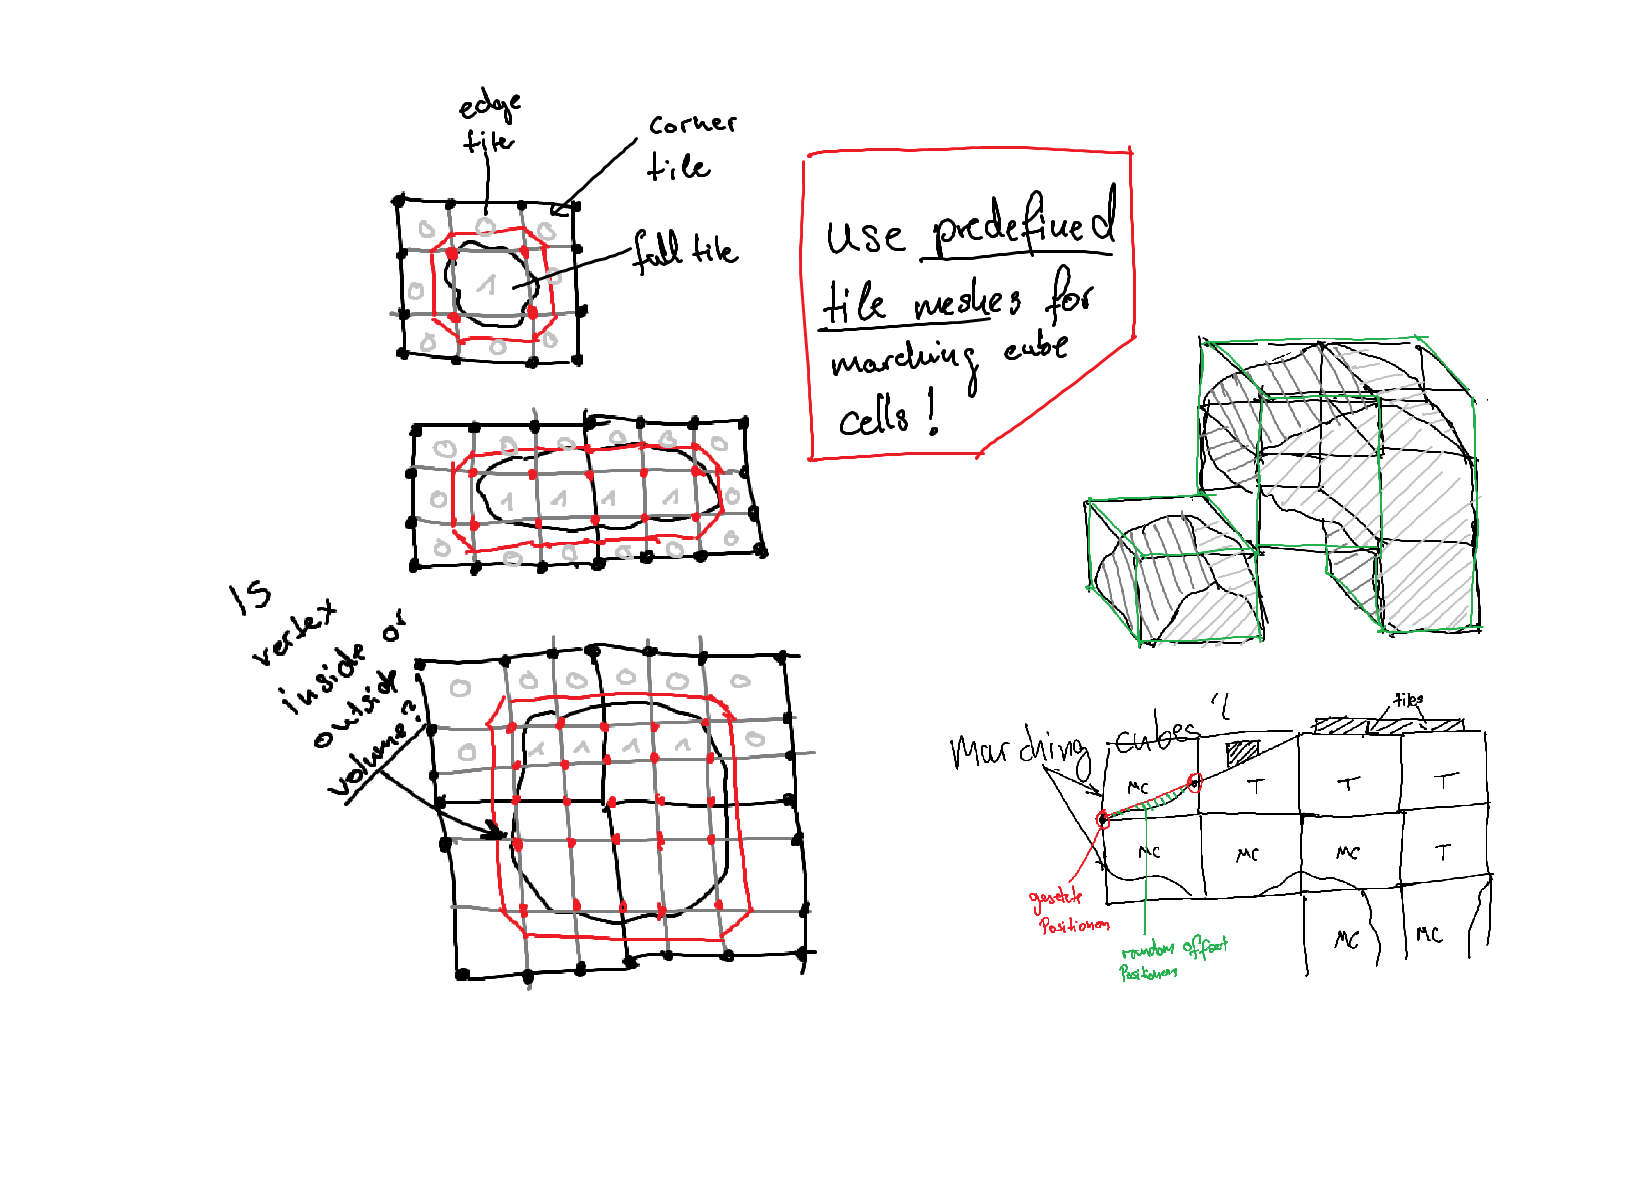 edge
tile
corner
tile
full tile
0 0 0
0 1 0
0 0 0
use predefined
tile meshes for
marching cube
cells!
0 0 0 0 0 0
0 1 1 1 1 0
0 0 0 0 0 0
Is
vertex
inside or
outside
volume?
0 0 0 0 0 0
0 1 1 1 1 0
Marching cubes
tiles
MC T T T
MC MC MC T
MC MC
gesetzte
Positionen
random offset
Positionen